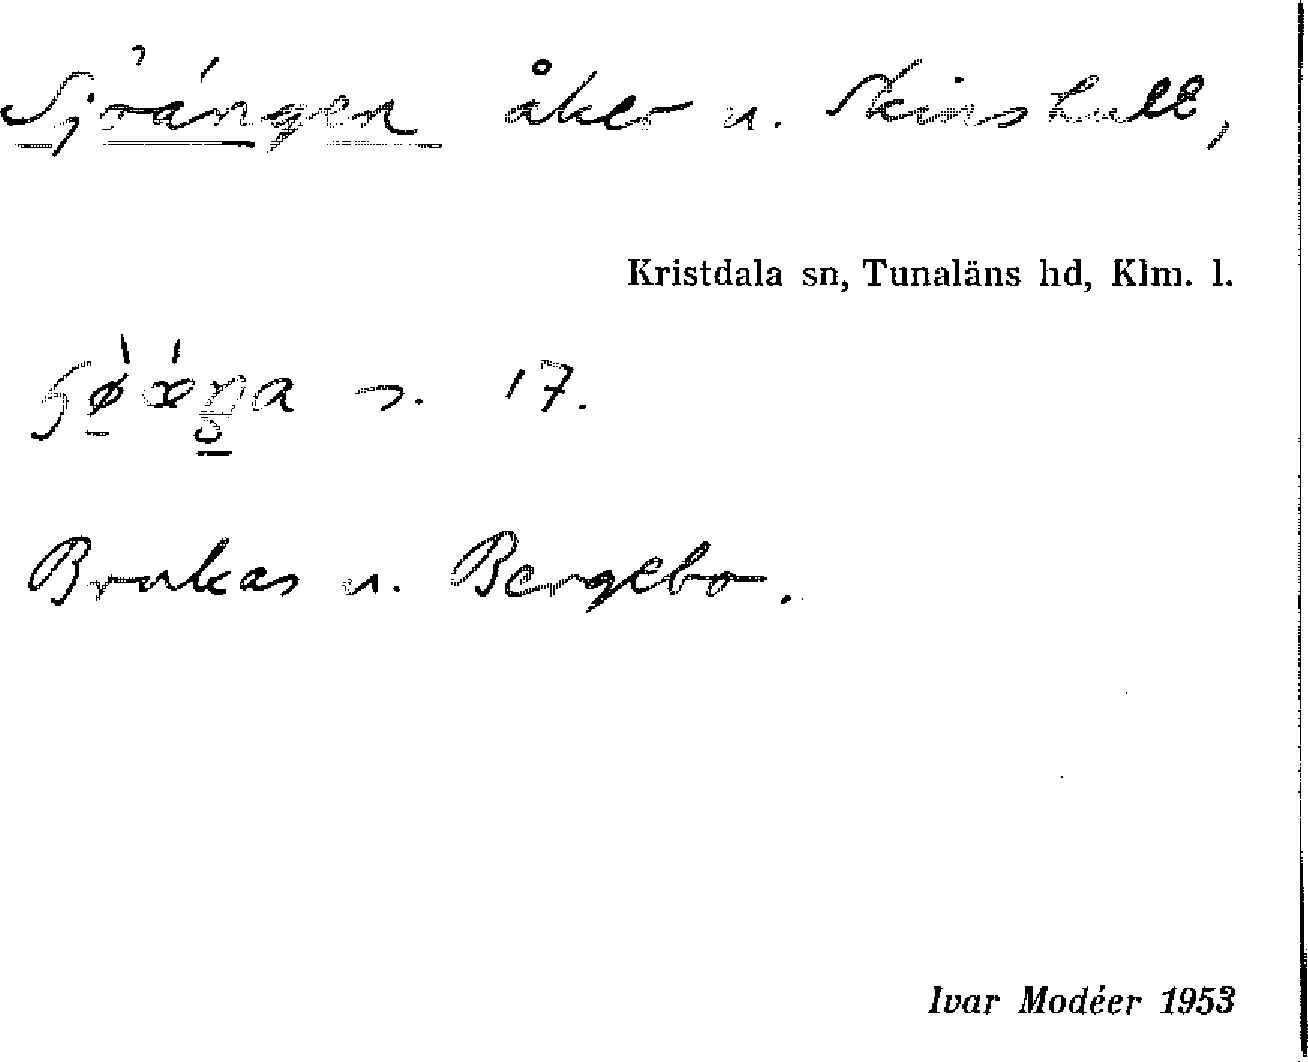 Sjöängen åker u. Skinshult,
Kristdala sn, Tunaläns hd, Klm. l.
n. 17.
Brukas u. Bergebo.
Ivar Modéer 1953